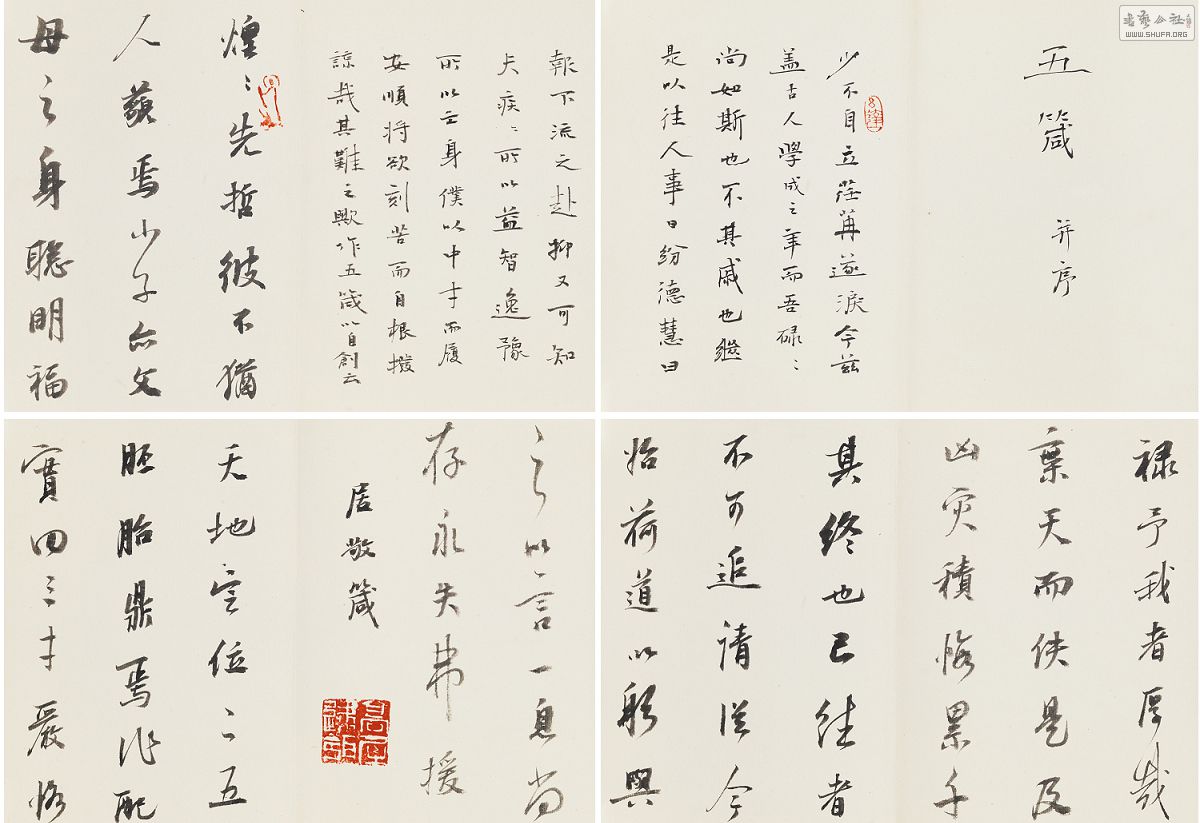 書藝公社
WWW.SHUFA.ORG
五箴 并序
少不自立荏苒遂淚今兹
盖古人學成之年而吾碌〻
尚如斯也不其戚也繼
是以往人事日紛德慧日
報下流之赴抑又可知
夫疾〻所以益智逸豫
所以亡身僕以中才而履
安順將欲刻苦而自根撥
諒哉其難之歟作五箴以自創云
煌〻先哲彼不猶
人藐焉小子亦父
母之身聰明福
祿予我者厚哉
棄天而佚是及
凶灾積悔累千
其終也已往者
不可追請從今
始荷道以躬輿
之以言一息尚
存永失弗援
居敬箴
天地定位二五
胚胎鼎焉作配
實曰三才嚴恪